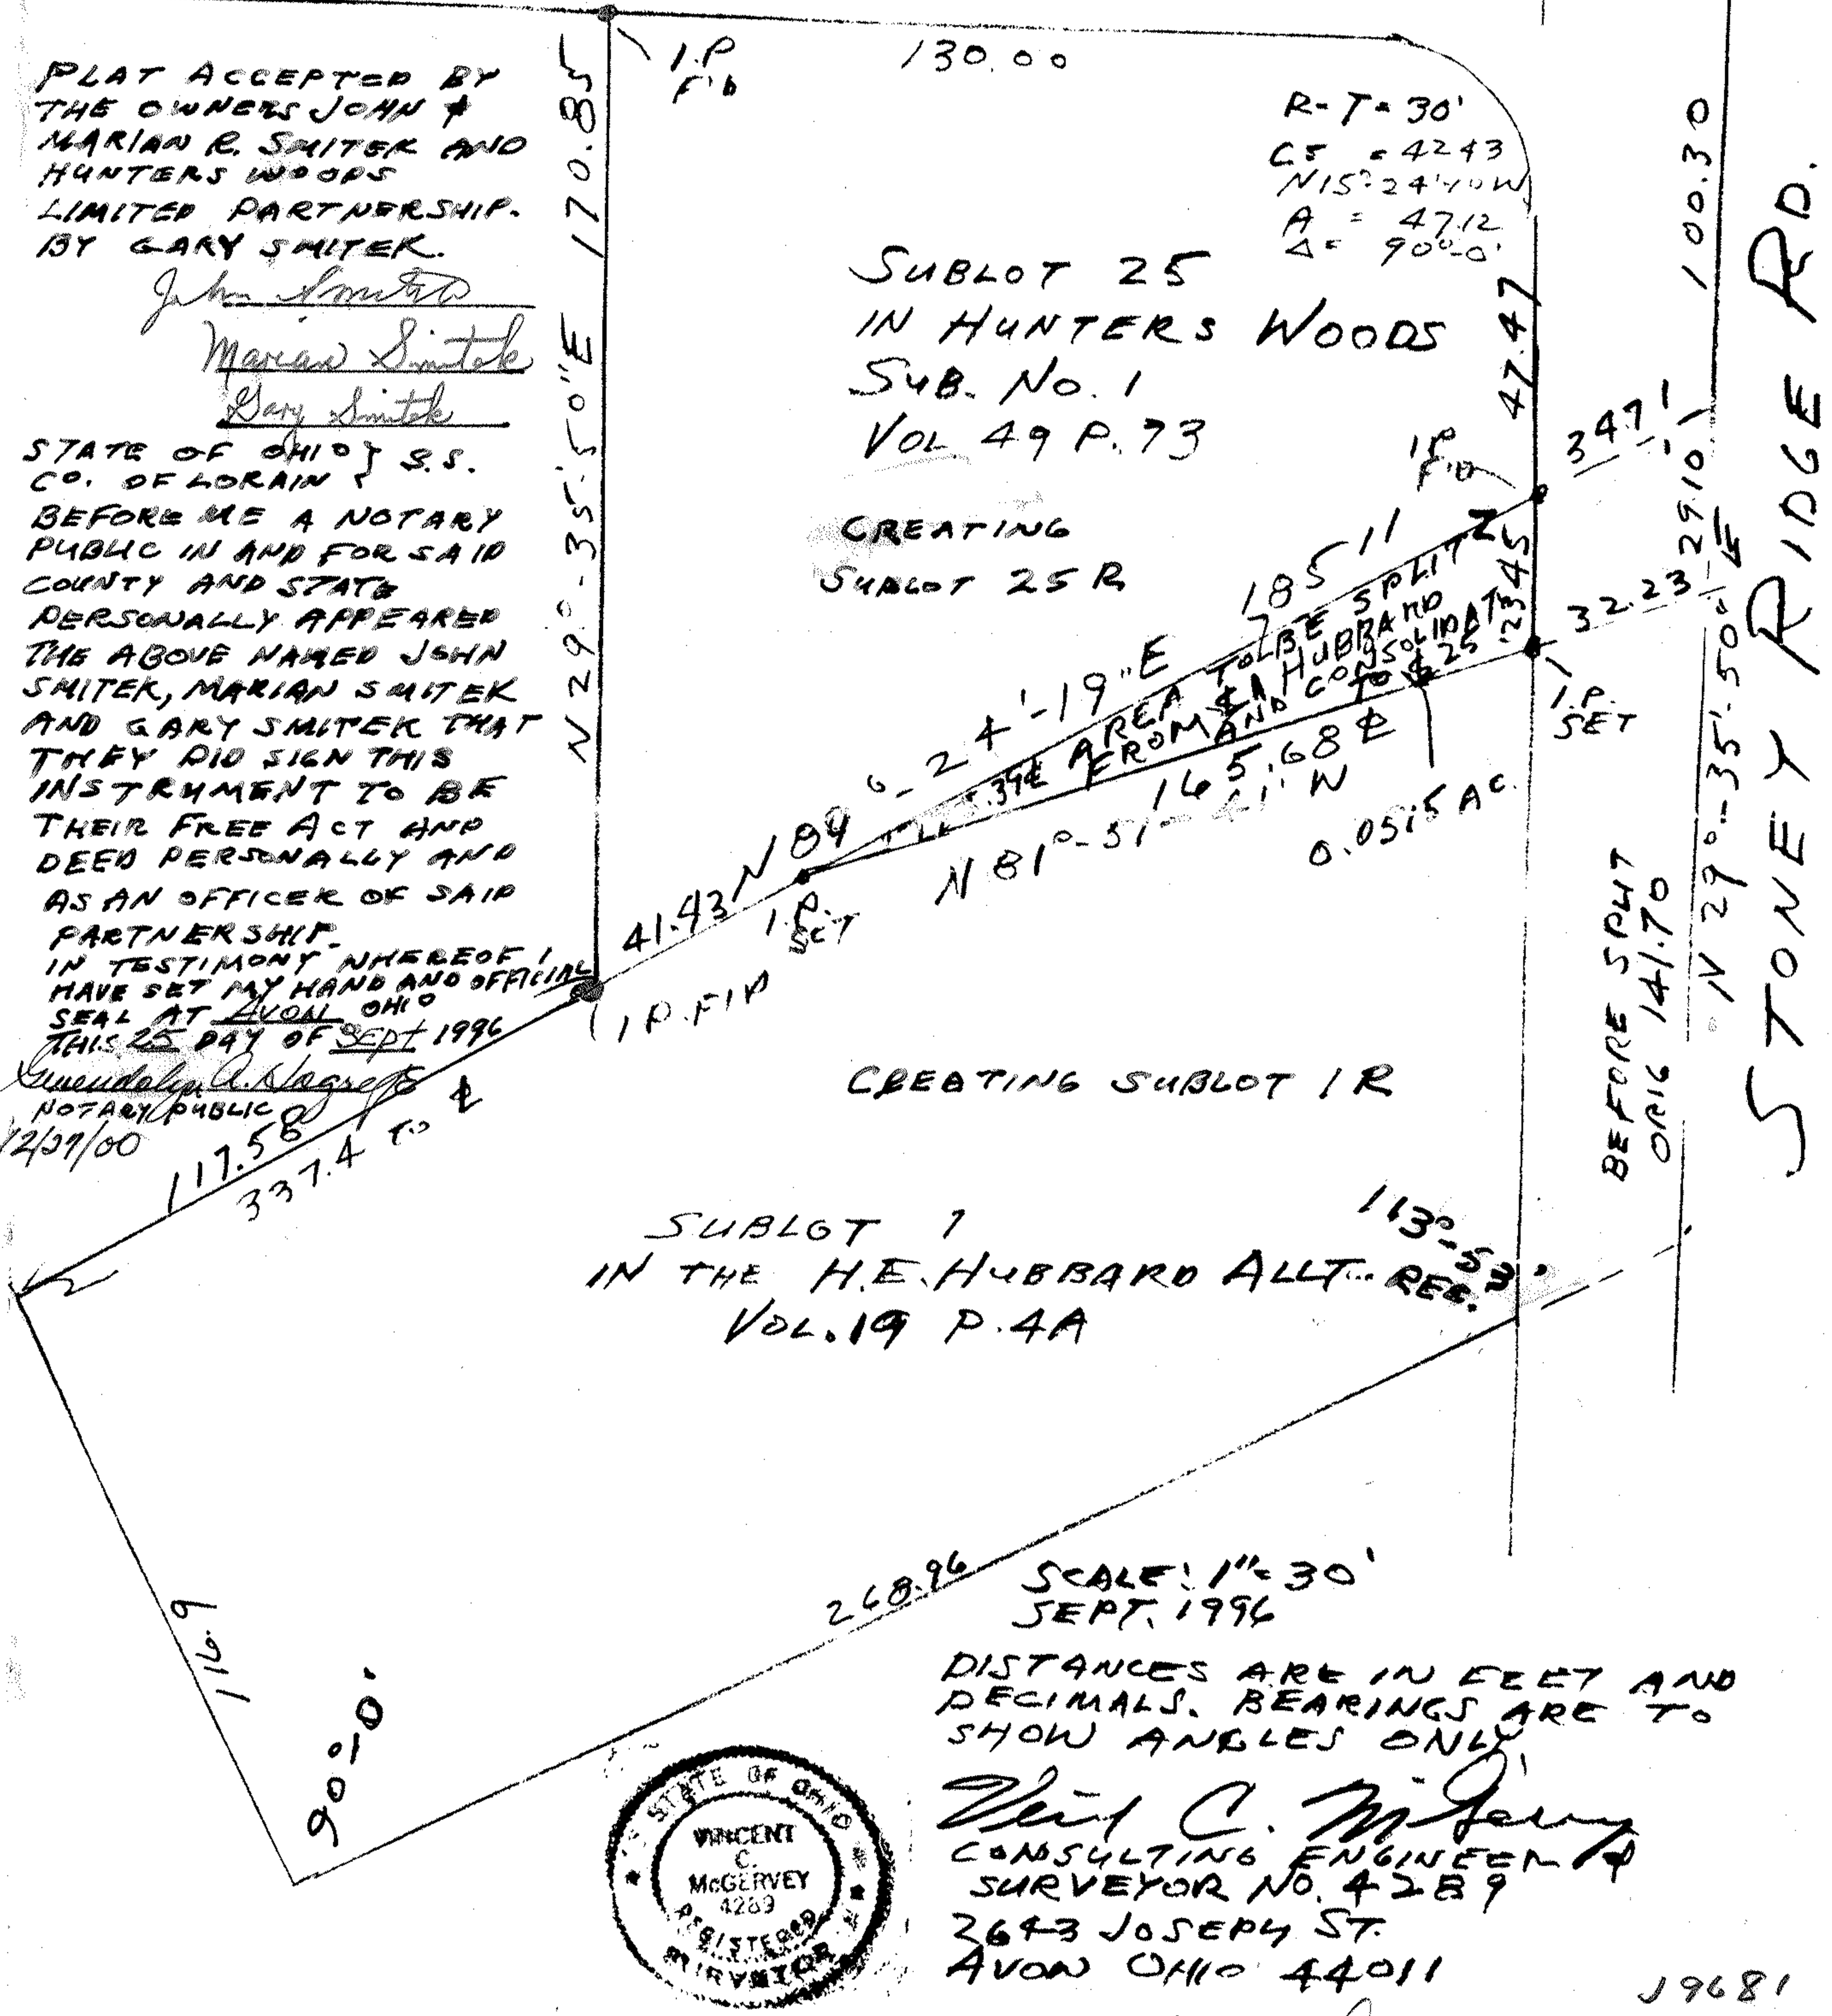 PLAT ACCEPTED BY
THE OWNERS JOHN &
MARIAN R. SMITEK AND
HUNTERS WOODS
LIMITED PARTNERSHIP.
BY GARY SMITEK.
John Smitek
Marian Smitek
Gary Smitek
STATE OF OHIO } S.S.
CO. OF LORAIN }
BEFORE ME A NOTARY
PUBLIC IN AND FOR SAID
COUNTY AND STATE
PERSONALLY APPEARED
THE ABOVE NAMED JOHN
SMITEK, MARIAN SMITEK
AND GARY SMITEK THAT
THEY DID SIGN THIS
INSTRUMENT TO BE
THEIR FREE ACT AND
DEED PERSONALLY AND
AS AN OFFICER OF SAID
PARTNERSHIP.
IN TESTIMONY WHEREOF I
HAVE SET MY HAND AND OFFICIAL
SEAL AT AVON OHIO
THIS 25 DAY OF Sept 1996
Gwendolyn A.
NOTARY PUBLIC
12/27/00
I.P.
F'D
130.00
N 29°-35'-50"E 170.85
R-T = 30'
= 4243
A = 47.12
Δ = 90°-0'
SUBLOT 25
IN HUNTERS WOODS
SUB. NO. 1
VOL 49 P. 73
CREATING
SUBLOT 25 R
47.47
100.30
STONEY RIDGE RD.
I.P.
F'D
34.71
29.10
23.45
32.23
I.P.
SET
N 29°-35'-50"
185.11
-24'-19"E
AREA TO BE SPLIT
FROM HUBBARD
AND CONSOLIDATE
TO 25
165.68
N 81°-51'
0.0515 AC.
41.43
I.P.
SET
I.P. F'D
BEFORE SPLIT
ORIG 141.70
CREATING SUBLOT 1 R
117.58
337.4 TO ℄
SUBLOT 1
IN THE H.E. HUBBARD ALLT.
VOL. 19 P. 4A
113°-53'
REC.
268.96
116.9
90°-0'
SCALE: 1"=30'
SEPT. 1996
DISTANCES ARE IN FEET AND
DECIMALS. BEARINGS ARE TO
SHOW ANGLES ONLY
STATE OF OHIO
VINCENT
C.
McGERVEY
4289
REGISTERED
SURVEYOR
CONSULTING ENGINEER &
SURVEYOR NO. 4289
2643 JOSEPH ST.
AVON OHIO 44011
J9681